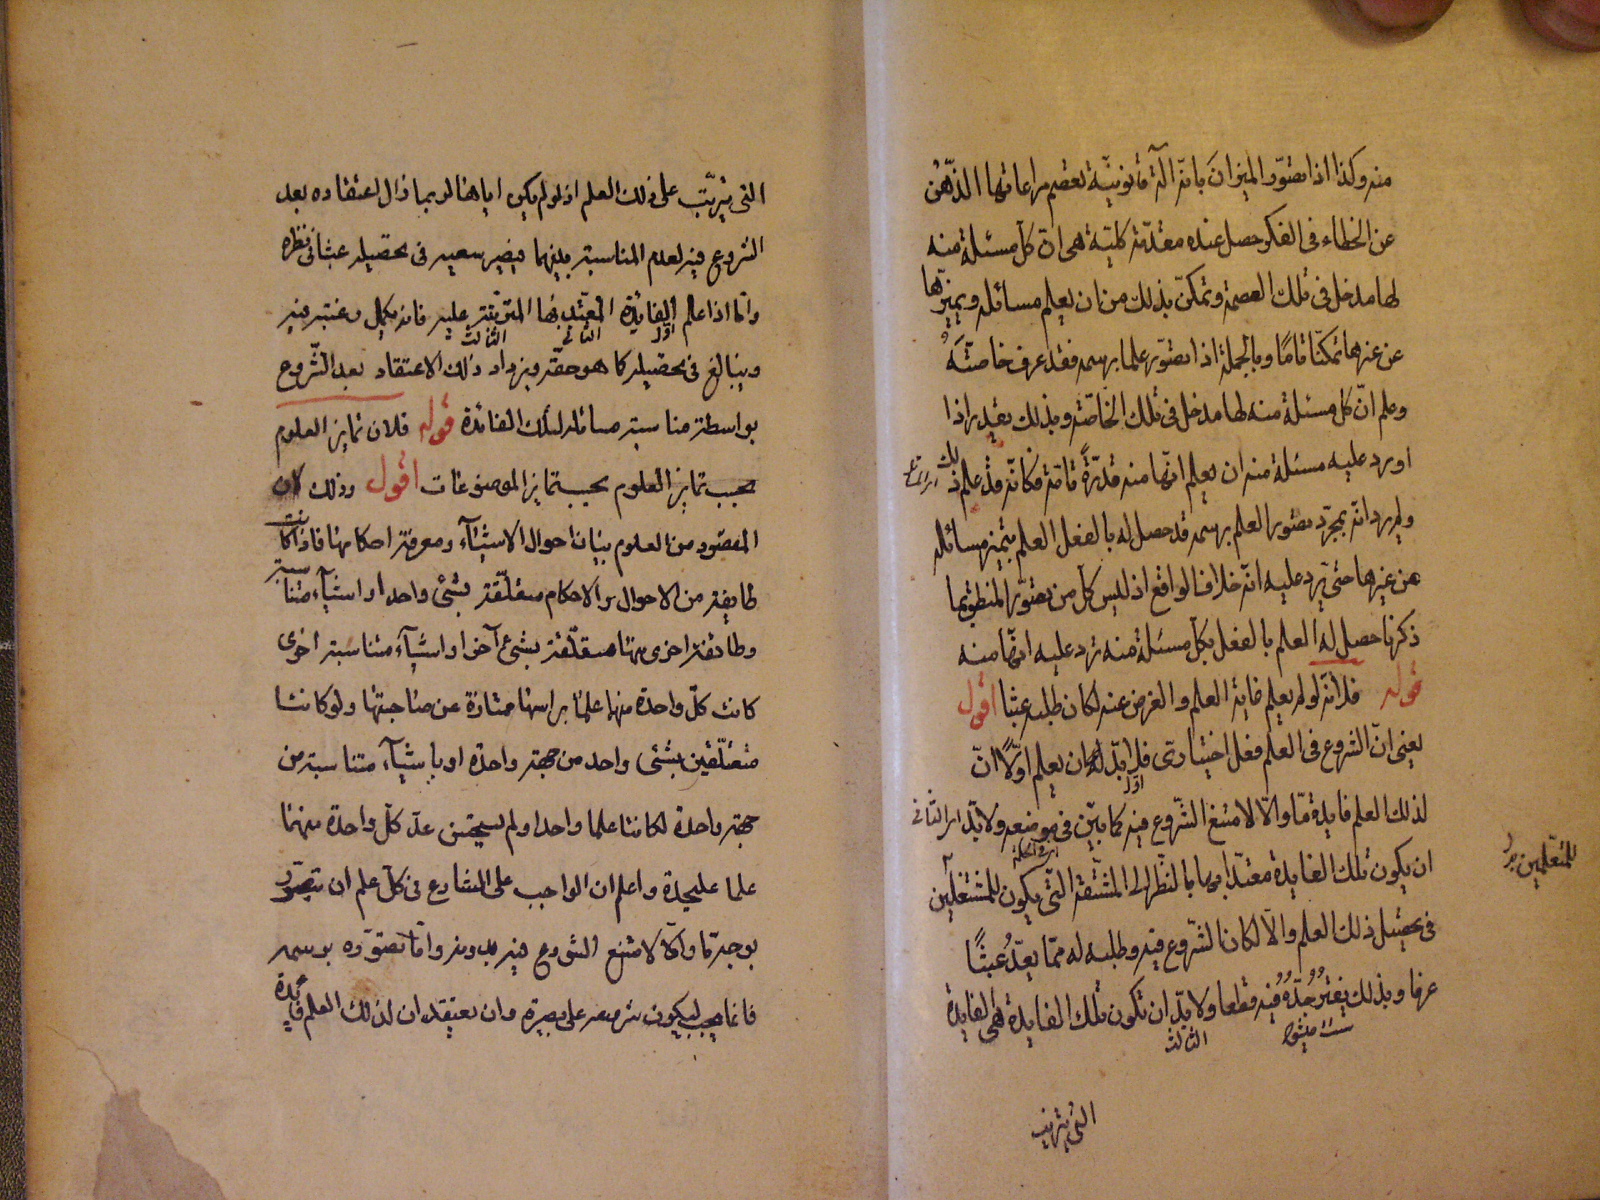 منه وكذا اذا تصوّر الميزان بانه آلة قانونيّة تعصم مراعاتها الذّهن
عن الخطاء فى الفكر حصل عنده مقدّمة كليّة هى انّ كل مسئلة منه
لها مدخل فى تلك العصمة وتمكّن بذلك من ان يعلم مسائله ويميزها
عن غيرها تمكنّا تامّا وبالجملة اذا تصوّر علما برسمه فقد عرف خاصّته
وعلم انّ كل مسئلة منه لها مدخل فى تلك الخاصّة وبذلك يقدر اذا
اورد عليه مسئلة منه ان يعلم انّها منه قدرةً تامّة فكانّه قد علم ذلك
ولم يرد انّه بمجرّد تصوّر العلم برسمه قد حصل له بالفعل العلم بتميز مسائله
عن غيرها حتّى يرد عليه انّه خلاف الواقع اذ ليس كل من تصوّر المنطق بما
ذكرنا حصل له العلم بالفعل بكلّ مسئلة منه ترد عليه انّها منه
قوله فلانّه لو لم يعلم غاية العلم والغرض عنه لكان طلبه عبثا اقول
يعنى انّ الشروع فى العلم فعل اختيارىّ فلا بدّ له ان يعلم اوّلاً انّ
اوّل
لذلك العلم فايدة مّا والّا لامتنع الشّروع فيه كما بيّن فى موضعه ولا بدّ
امر الثانى
ان يكون تلك الفايدة معتدّا بها بالنّظر الى المشقّة الّتى يكون للمشتغلين
للمتعلمين
فى تحصيل ذلك العلم والّا لكان الشّروع فيه وطلبه له ممّا يعدّ عبثًا
عرفا وبذلك يفتر جدّه فيه قطعا ولا بدّ ان تكون تلك الفايدة هى الفايدة
الثالث
التى يترتب
التى يترتّب على ذلك العلم اذ لو لم يكن اياها لربما زال اعتقاده بعد
الشروع فيه لعدم المناسبة بينهما فيصير سعيه فى تحصيله عبثا فى نظره
وامّا اذا علم الفائدة المعتدّ بها المترتّبة عليه فانه يكمل رغبته فيه
اوّل الثانى الثالث
ويبالغ فى تحصيله كما هو حقّه ويزداد ذلك الاعتقاد بعد الشّروع
بواسطة مناسبة مسائله لتلك الفائدة قوله فلان تمايز العلوم
بحسب تمايز العلوم بحسب تمايز الموضوعات اقول وذلك لان
المقصود من العلوم بيان احوال الاشيآء ومعرفة احكامها فاذا كانت
طايفة من الاحوال والاحكام متعلّقة بشئ واحد او اشيآء متناسبة
وطائفة اخرى منها متعلّقة بشئ آخر او اشيآء متناسبة اخرى
كانت كلّ واحدة منهما علمًا براسها ممتازة عن صاحبتها ولو كانتا
متعلّقتين بشئ واحد من جهة واحدة او باشيآء متناسبة من
جهة واحدة لكانتا علما واحدا ولم يستحسن عدّ كلّ واحدة منهما
علما عليحدة واعلم ان الواجب على الشارع فى كلّ علم ان يتصوّر
بوجه مّا والّا لامتنع الشروع فيه بدونه وامّا تصوّره برسمه
فانما يجب ليكون شروعه على بصيرة وان يعتقد ان لذلك العلم فايدة